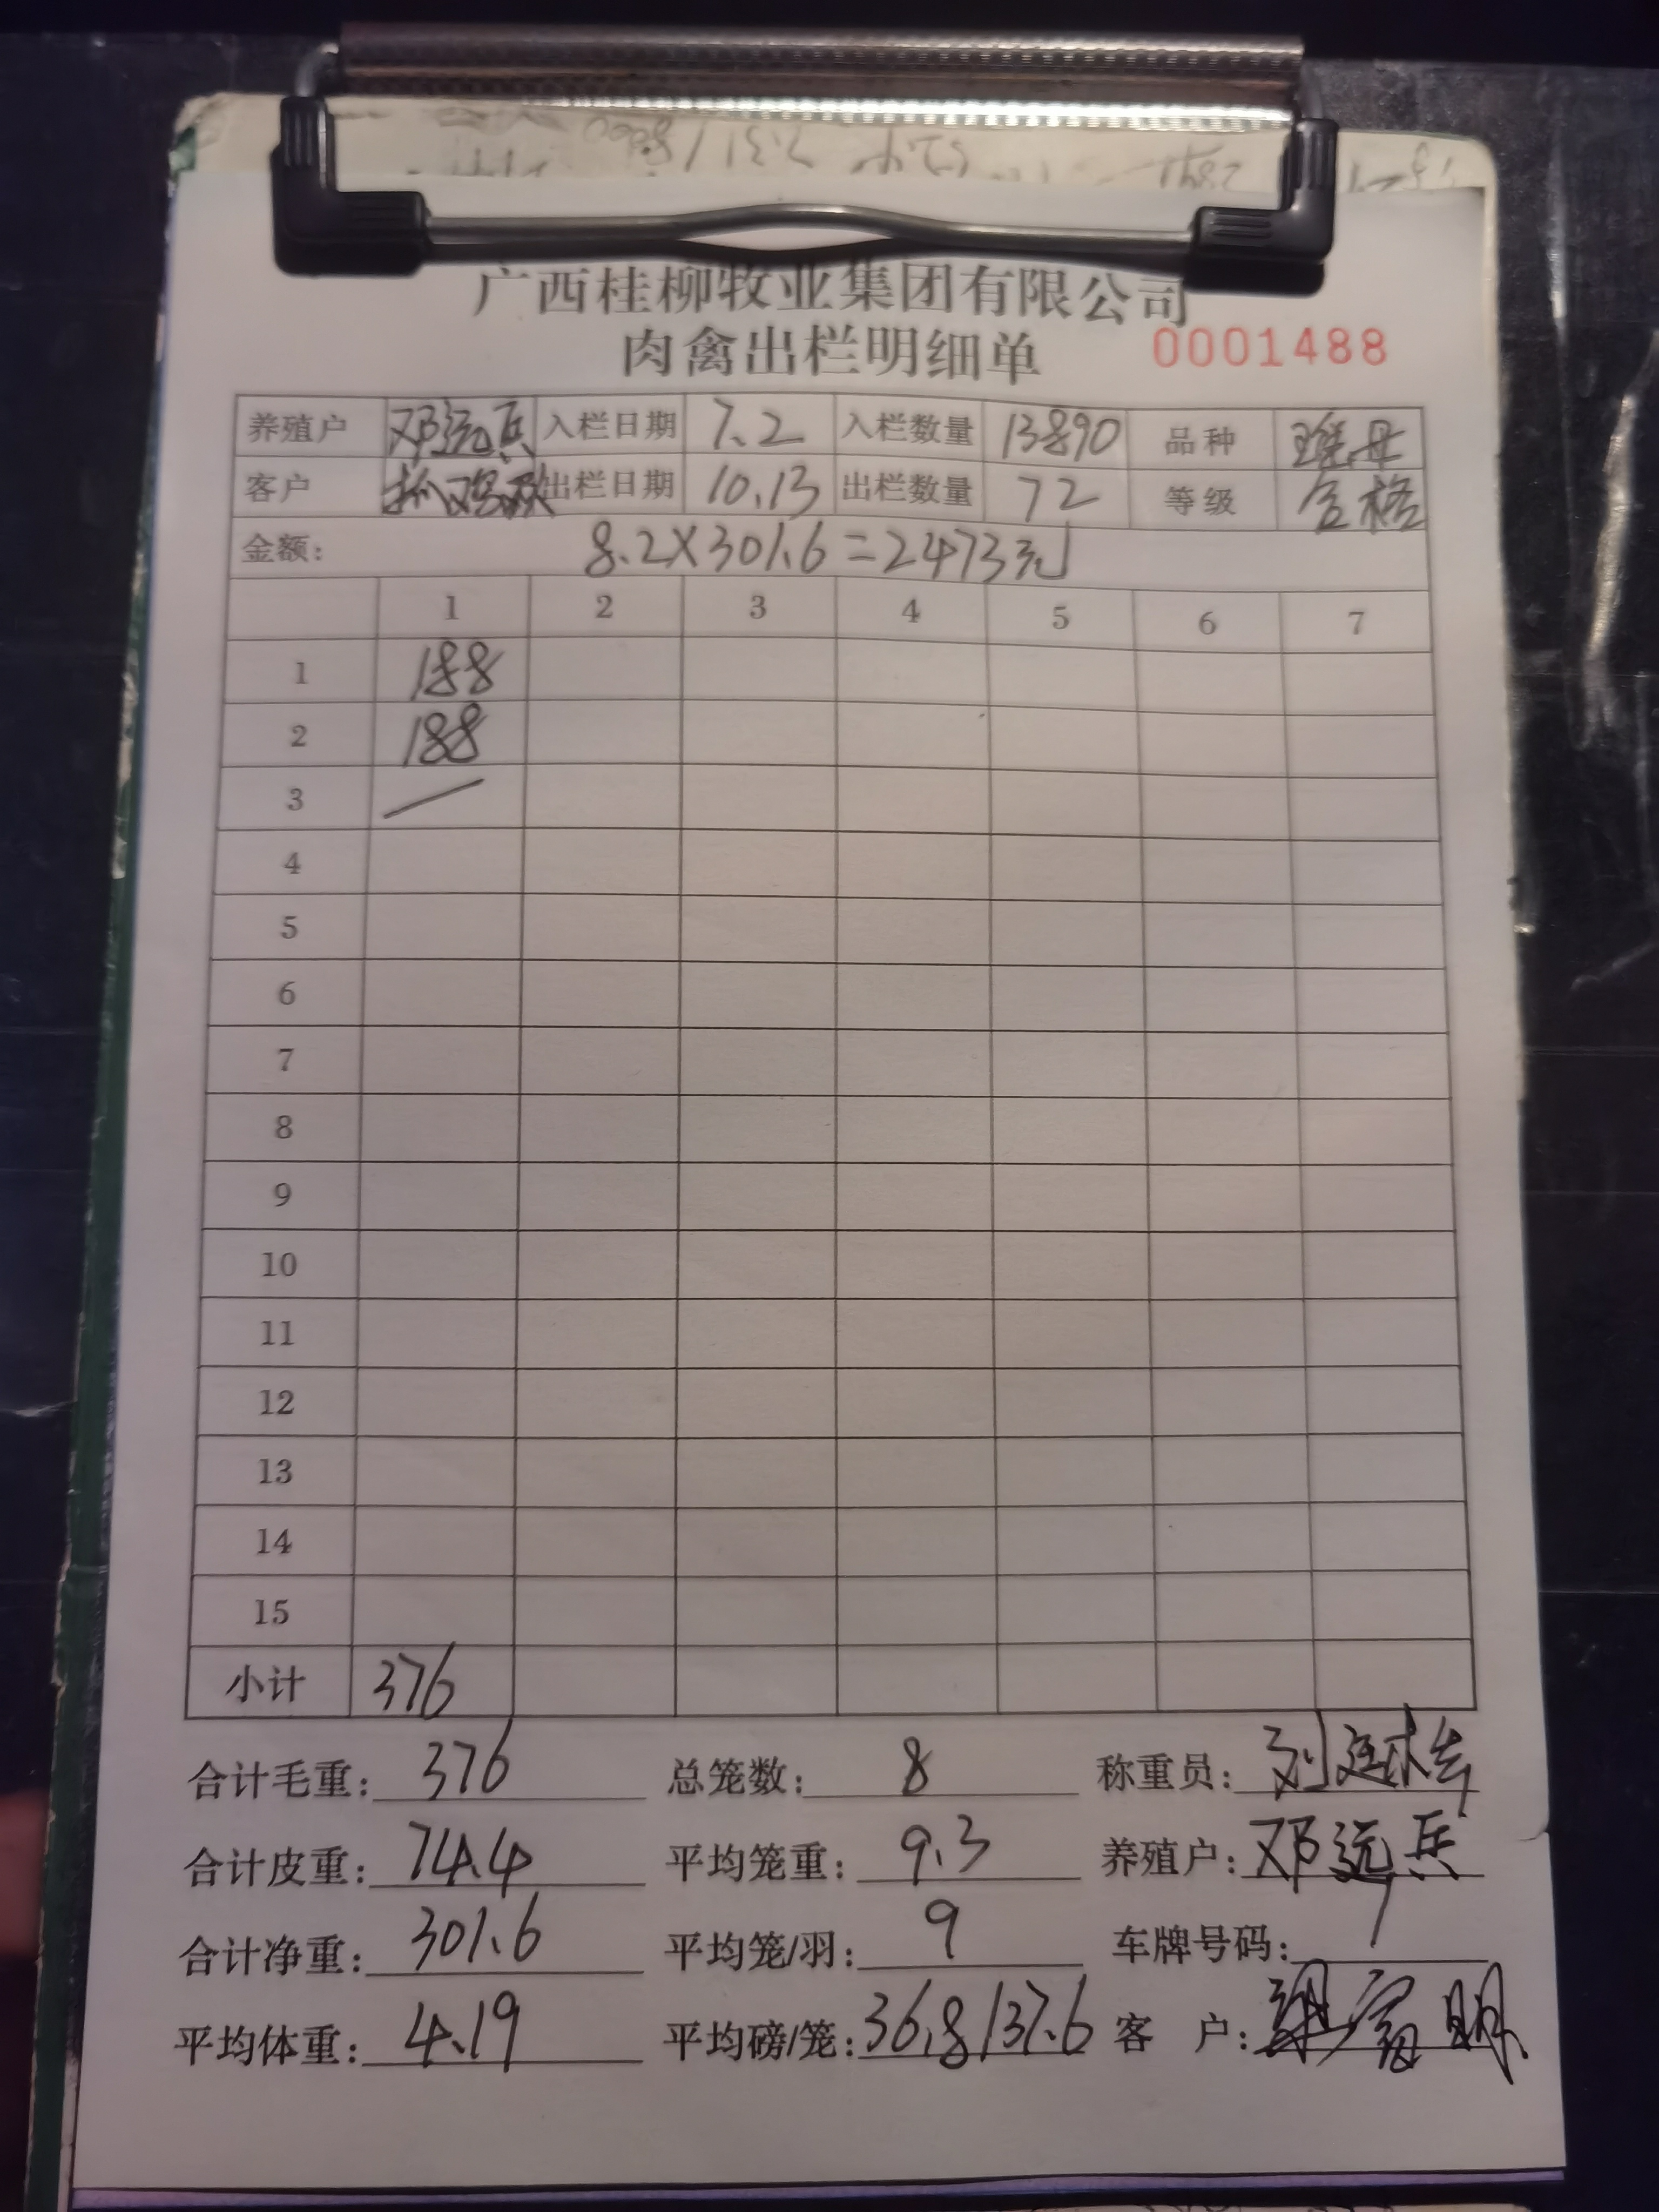 广西桂柳牧业集团有限公司
肉禽出栏明细单 0001488
养殖户 邓远兵 入栏日期 7.2 入栏数量 13890 品种 瑶母
客户 抓鸡队 出栏日期 10.13 出栏数量 72 等级 合格
金额: 8.2×301.6=2473元
1 2 3 4 5 6 7
1 188
2 188
3
4
5
6
7
8
9
10
11
12
13
14
15
小计 376
合计毛重: 376 总笼数: 8 称重员:
合计皮重: 74.4 平均笼重: 9.3 养殖户: 邓远兵
合计净重: 301.6 平均笼/羽: 9 车牌号码: /
平均体重: 4.19 平均磅/笼: 36.8/37.6 客 户: